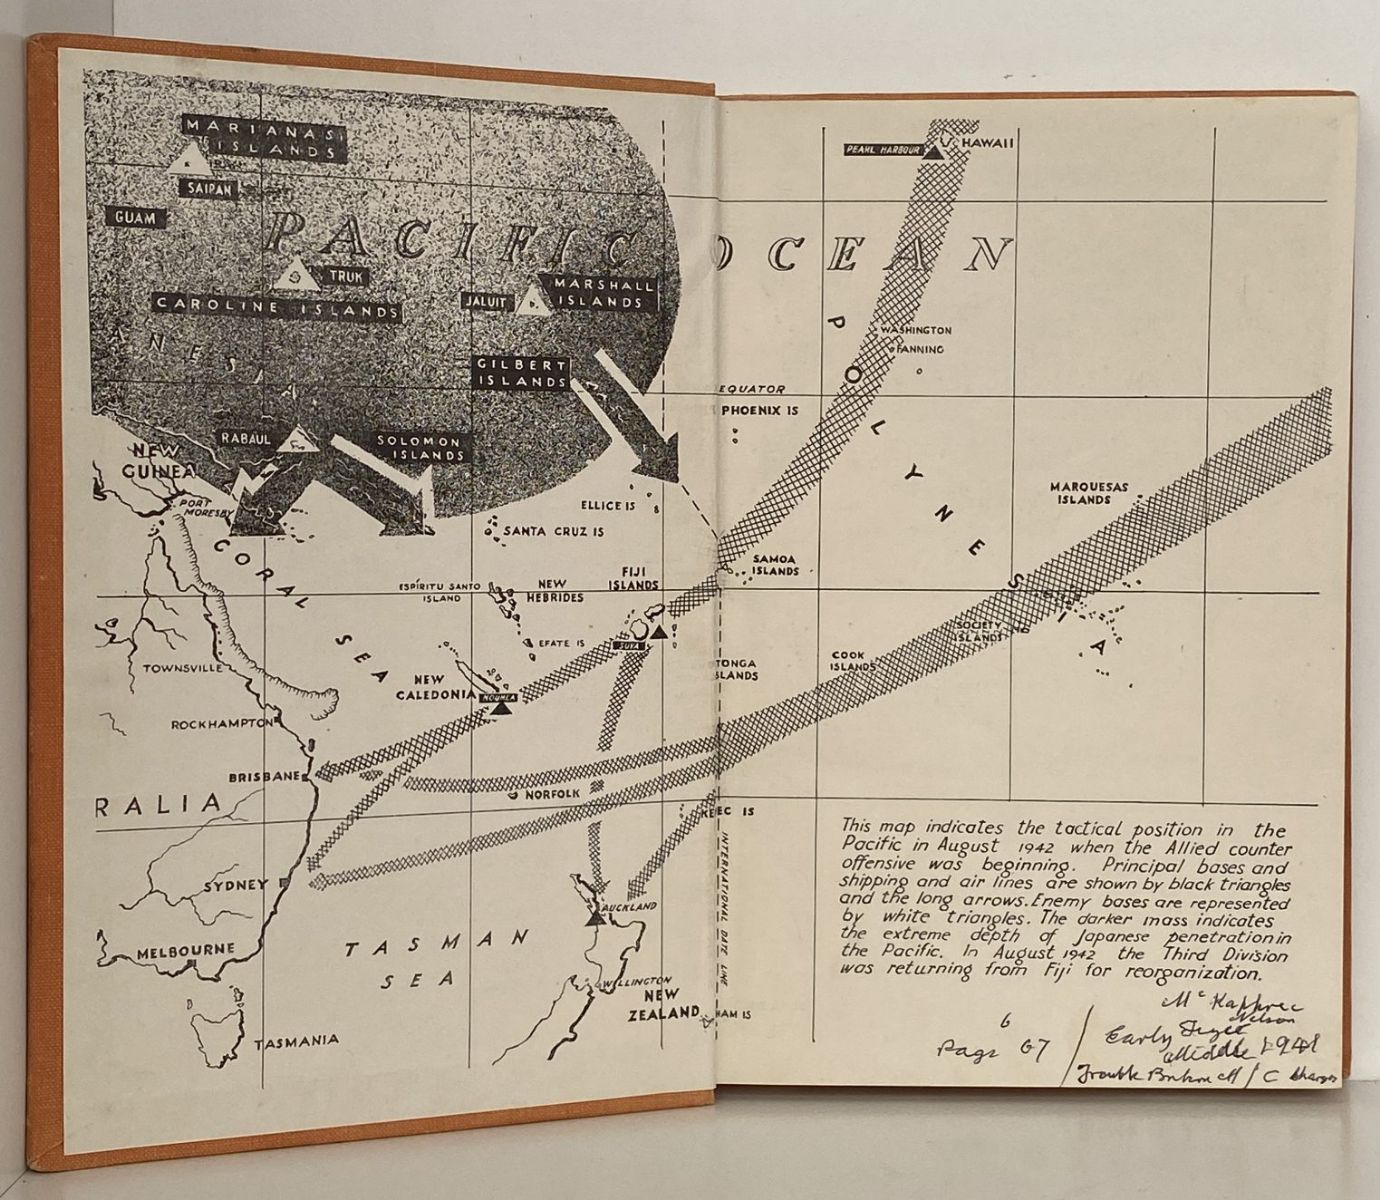 MARIANAS
ISLANDS
SAIPAN
GUAM
PACIFIC OCEAN
TRUK
CAROLINE ISLANDS
JALUIT
MARSHALL
ISLANDS
ANESIA
GILBERT
ISLANDS
RABAUL
SOLOMON
ISLANDS
NEW
GUINEA
PORT
MORESBY
ELLICE IS
SANTA CRUZ IS
CORAL SEA
ESPÍRITU SANTO
ISLAND
NEW
HEBRIDES
FIJI
ISLANDS
EFATE IS
SUVA
TOWNSVILLE
NEW
CALEDONIA
NOUMEA
ROCKHAMPTON
BRISBANE
NORFOLK
RALIA
SYDNEY
MELBOURNE
TASMAN
SEA
AUCKLAND
WELLINGTON
NEW
ZEALAND
HAM IS
TASMANIA
PEARL HARBOUR
HAWAII
WASHINGTON
FANNING
POLYNESIA
EQUATOR
PHOENIX IS
MARQUESAS
ISLANDS
SAMOA
ISLANDS
SOCIETY
ISLANDS
COOK
ISLANDS
TONGA
ISLANDS
EC IS
INTERNATIONAL DATE LINE
This map indicates the tactical position in the
Pacific in August 1942 when the Allied counter
offensive was beginning. Principal bases and
shipping and air lines are shown by black triangles
and the long arrows. Enemy bases are represented
by white triangles. The darker mass indicates
the extreme depth of Japanese penetration in
the Pacific. In August 1942 the Third Division
was returning from Fiji for reorganization.
Nelson
6
Page 67
Early
Middle 1941